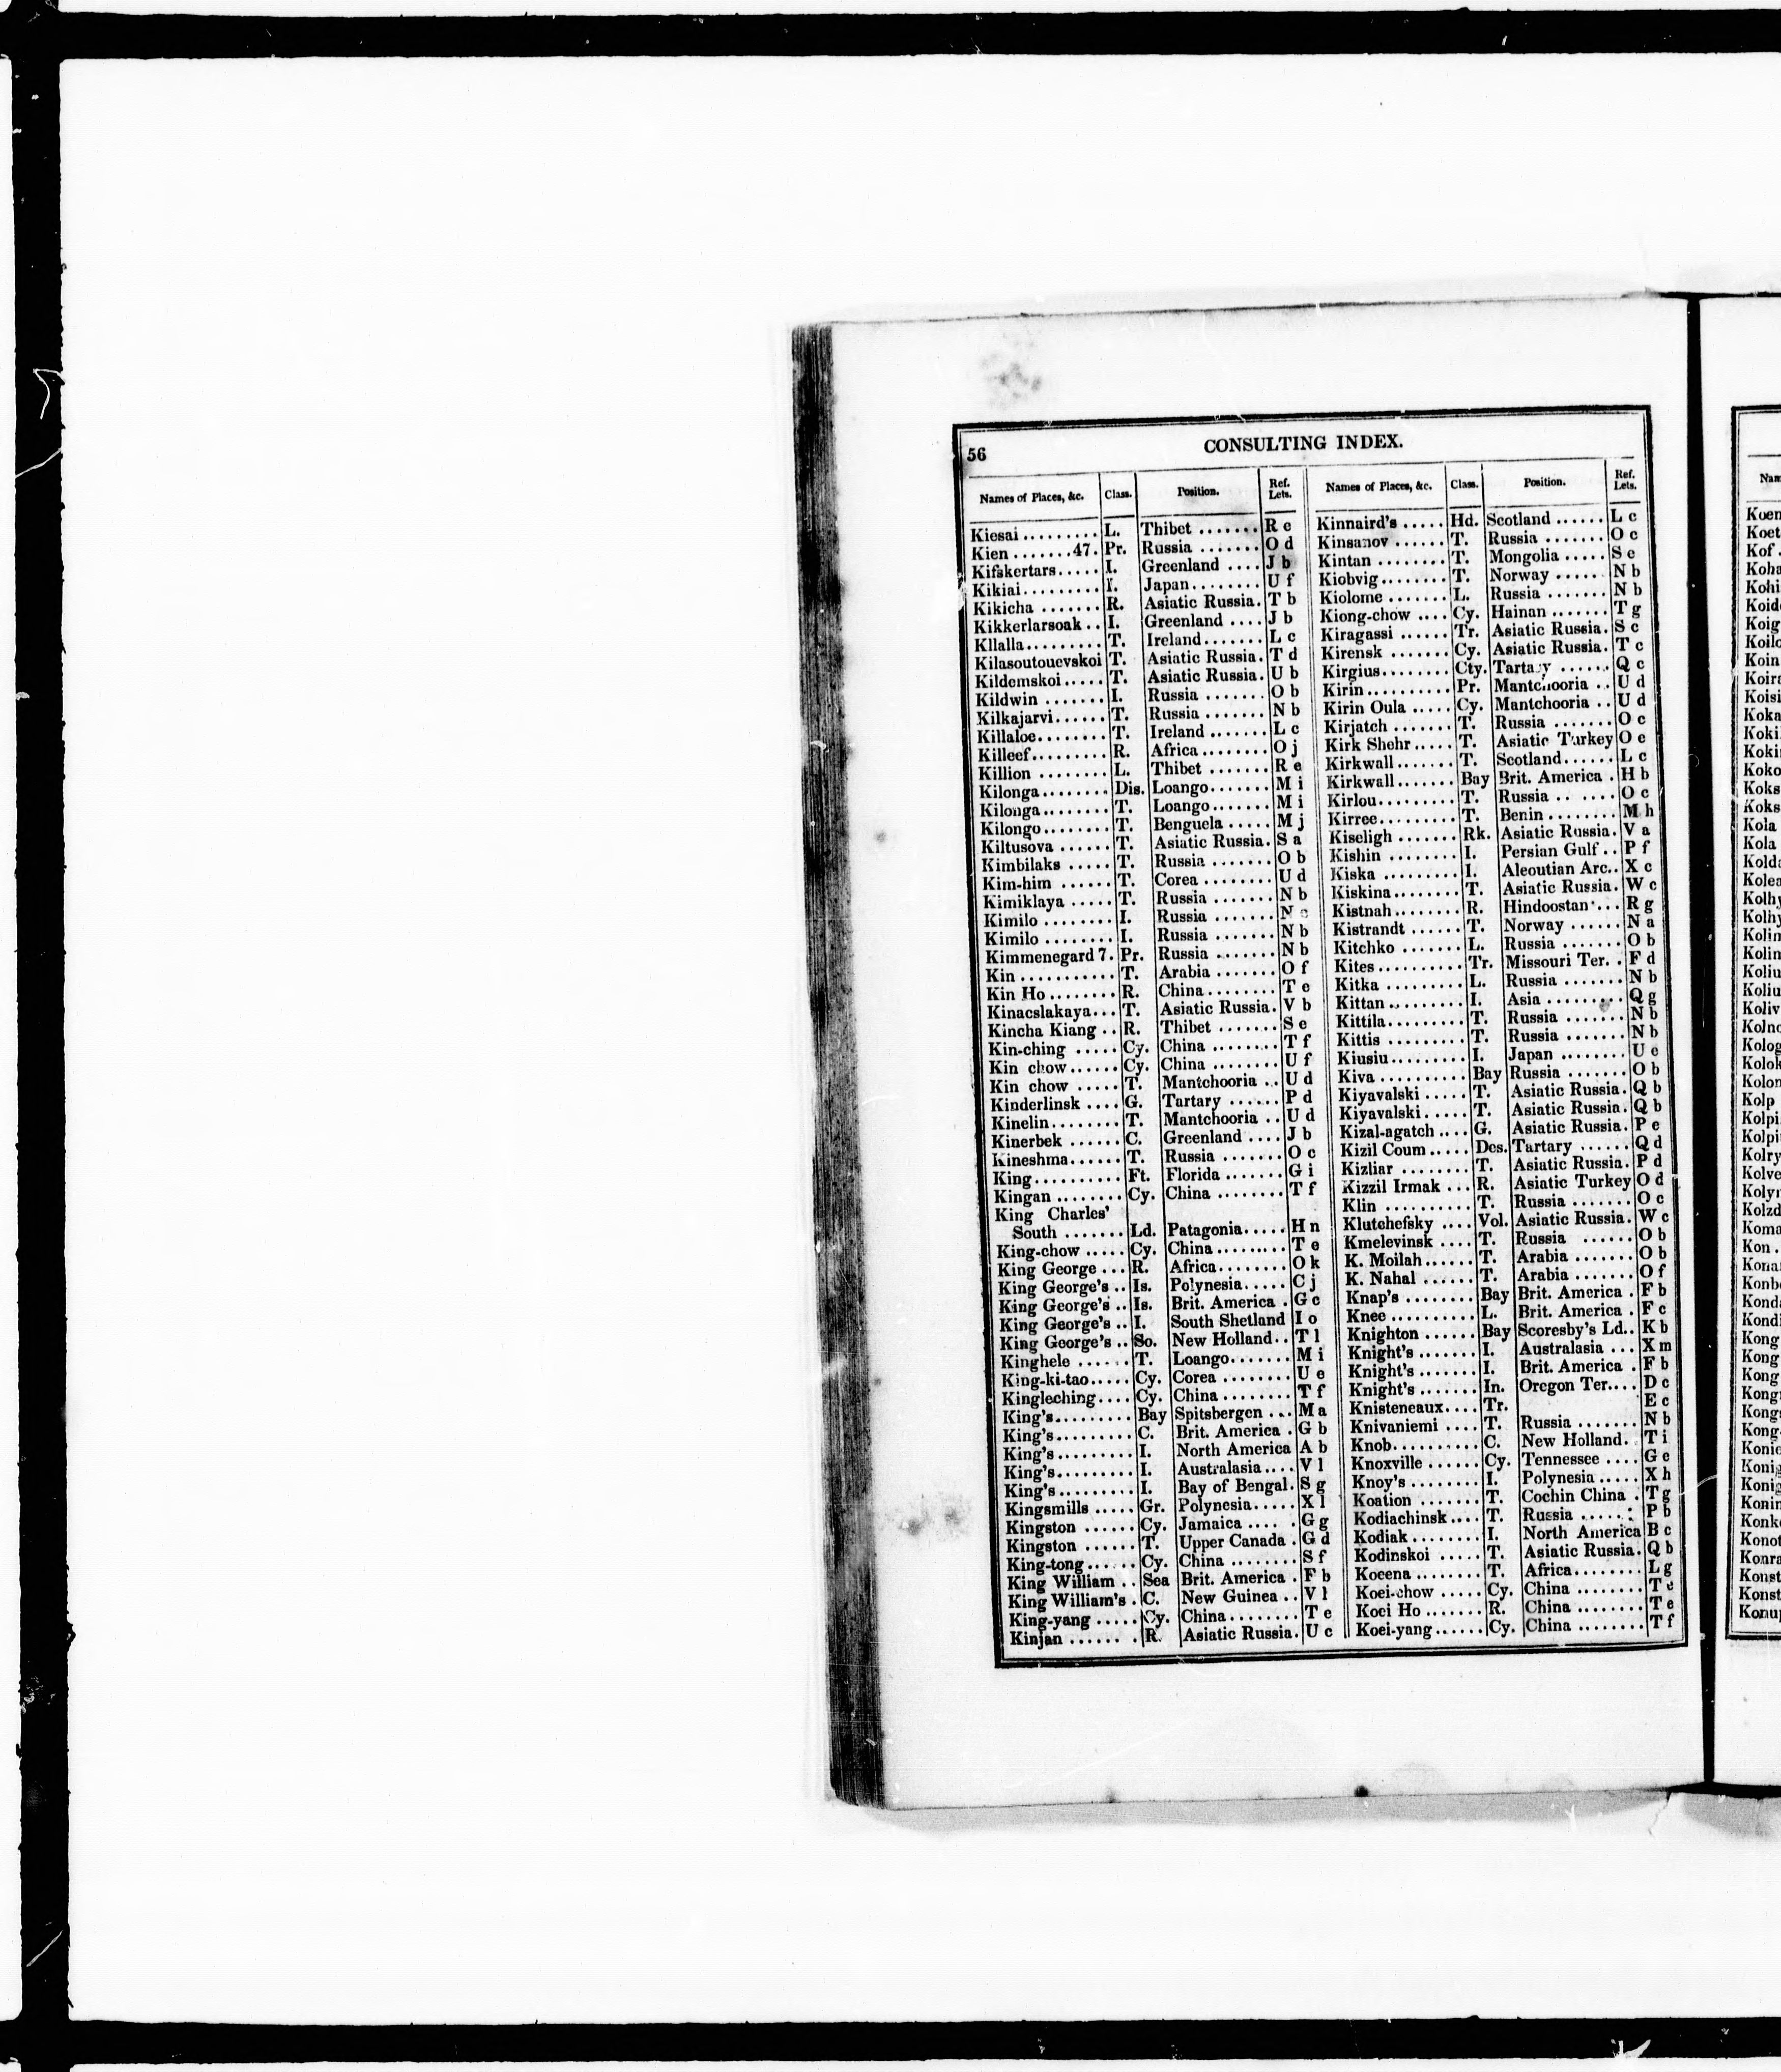 56
CONSULTING INDEX.
Names of Places, &c. Class. Position. Ref. Lets.
Kiesai ......... L. Thibet ....... R e
Kien .......47. Pr. Russia ....... O d
Kifskertars..... I. Greenland .... J b
Kikiai......... I. Japan........ U f
Kikicha ....... R. Asiatic Russia. T b
Kikkerlarsoak .. I. Greenland .... J b
Kllalla......... T. Ireland....... L c
Kilasoutouevskoi T. Asiatic Russia. T d
Kildemskoi..... T. Asiatic Russia. U b
Kildwin ....... I. Russia ....... O b
Kilkajarvi...... T. Russia ....... N b
Killaloe........ T. Ireland ....... L c
Killeef......... R. Africa........ O j
Killion ........ L. Thibet ....... R e
Kilonga........ Dis. Loango....... M i
Kilonga........ T. Loango....... M i
Kilongo........ T. Benguela ..... M j
Kiltusova ...... T. Asiatic Russia. S a
Kimbilaks ..... T. Russia ....... O b
Kim-him ...... T. Corea ........ U d
Kimiklaya ..... T. Russia ....... N b
Kimilo ........ I. Russia ....... N
Kimilo ........ I. Russia ....... N b
Kimmenegard 7. Pr. Russia ....... N b
Kin ........... T. Arabia ....... O f
Kin Ho........ R. China........ T e
Kinacslakaya... T. Asiatic Russia. V b
Kincha Kiang .. R. Thibet ....... S e
Kin-ching ..... Cy. China ........ T f
Kin chow...... Cy. China ........ U f
Kin chow ..... T. Mantchooria .. U d
Kinderlinsk .... G. Tartary ...... P d
Kinelin........ T. Mantchooria .. U d
Kinerbek ...... C. Greenland .... J b
Kineshma...... T. Russia ....... O c
King.......... Ft. Florida ....... G i
Kingan ........ Cy. China ........ T f
King Charles'
South ....... Ld. Patagonia..... H n
King-chow ..... Cy. China......... T e
King George ... R. Africa........ O k
King George's .. Is. Polynesia..... C j
King George's .. Is. Brit. America . G c
King George's .. I. South Shetland I o
King George's .. So. New Holland.. T l
Kinghele ...... T. Loango....... M i
King-ki-tao..... Cy. Corea ........ U e
Kingleching.... Cy. China ........ T f
King's......... Bay Spitsbergen ... M a
King's......... C. Brit. America . G b
King's......... I. North America A b
King's......... I. Australasia.... V l
King's......... I. Bay of Bengal. S g
Kingsmills ..... Gr. Polynesia..... X l
Kingston ...... Cy. Jamaica .... . G g
Kingston ...... T. Upper Canada . G d
King-tong...... Cy. China ........ S f
King William .. Sea Brit. America . F b
King William's . C. New Guinea .. V l
King-yang ..... Cy. China........ T e
Kinjan ...... . R. Asiatic Russia. U c
Names of Places, &c. Class. Position. Ref. Lets.
Kinnaird's ..... Hd. Scotland ...... L c
Kinsanov ...... T. Russia ....... O c
Kintan ........ T. Mongolia ..... S e
Kiobvig........ T. Norway ...... N b
Kiolome ....... L. Russia ....... N b
Kiong-chow .... Cy. Hainan ....... T g
Kiragassi ...... Tr. Asiatic Russia. S c
Kirensk ....... Cy. Asiatic Russia. T c
Kirgius........ Cty. Tartary ...... Q c
Kirin.......... Pr. Mantchooria .. U d
Kirin Oula ..... Cy. Mantchooria .. U d
Kirjatch ....... T. Russia ....... O c
Kirk Shehr..... T. Asiatic Turkey O e
Kirkwall....... T. Scotland...... L c
Kirkwall....... Bay Brit. America . H b
Kirlou......... T. Russia .. .... O c
Kirree......... T. Benin ........ M h
Kiseligh ....... Rk. Asiatic Russia. V a
Kishin ........ I. Persian Gulf .. P f
Kiska ......... I. Aleoutian Arc.. X c
Kiskina........ T. Asiatic Russia. W c
Kistnah........ R. Hindoostan ... R g
Kistrandt ...... T. Norway ...... N a
Kitchko ....... L. Russia ....... O b
Kites.......... Tr. Missouri Ter. . F d
Kitka ......... L. Russia ....... N b
Kittan ......... I. Asia ......... Q g
Kittila......... T. Russia ....... N b
Kittis ......... T. Russia ....... N b
Kiusiu......... I. Japan ........ U e
Kiva .......... Bay Russia ....... O b
Kiyavalski ..... T. Asiatic Russia. Q b
Kiyavalski..... T. Asiatic Russia. Q b
Kizal-agatch .... G. Asiatic Russia. P e
Kizil Coum..... Des. Tartary ...... Q d
Kizliar ........ T. Asiatic Russia. P d
Kizzil Irmak ... R. Asiatic Turkey O d
Klin .......... T. Russia ....... O c
Klutchefsky .... Vol. Asiatic Russia. W c
Kmelevinsk .... T. Russia ...... O b
K. Moilah...... T. Arabia ....... O b
K. Nahal ...... T. Arabia ....... O f
Knap's ........ Bay Brit. America . F b
Knee .......... L. Brit. America . F c
Knighton ...... Bay Scoresby's Ld.. K b
Knight's ....... I. Australasia ... X m
Knight's ....... I. Brit. America . F b
Knight's ....... In. Oregon Ter.... D c
Knisteneaux.... Tr. E c
Knivaniemi .... T. Russia ....... N b
Knob.......... C. New Holland. . T i
Knoxville ...... Cy. Tennessee .... G e
Knoy's ........ I. Polynesia ..... X h
Koation ....... T. Cochin China . T g
Kodiachinsk.... T. Russia ...... P b
Kodiak ........ I. North America B c
Kodinskoi ..... T. Asiatic Russia. Q b
Koeena ........ T. Africa........ L g
Koei-chow ..... Cy. China ........ T e
Koei Ho ....... R. China ........ T e
Koei-yang...... Cy. China ........ T f